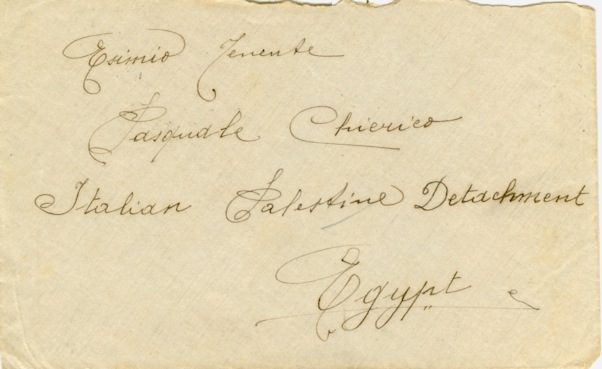 Esimio Tenente
Pasquale Chierico
Italian Palestine Detachment
Egypt